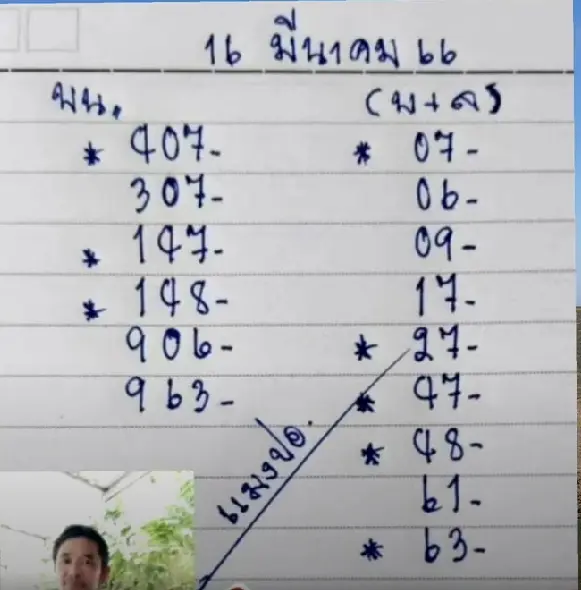 16 มีนาคม 66
บน.
(บ+ล)
* 407-
* 07-
307-
06-
* 147-
09-
* 148-
17-
906-
* 27-
963-
* 47-
แมงปอ.
* 48-
61-
* 63-